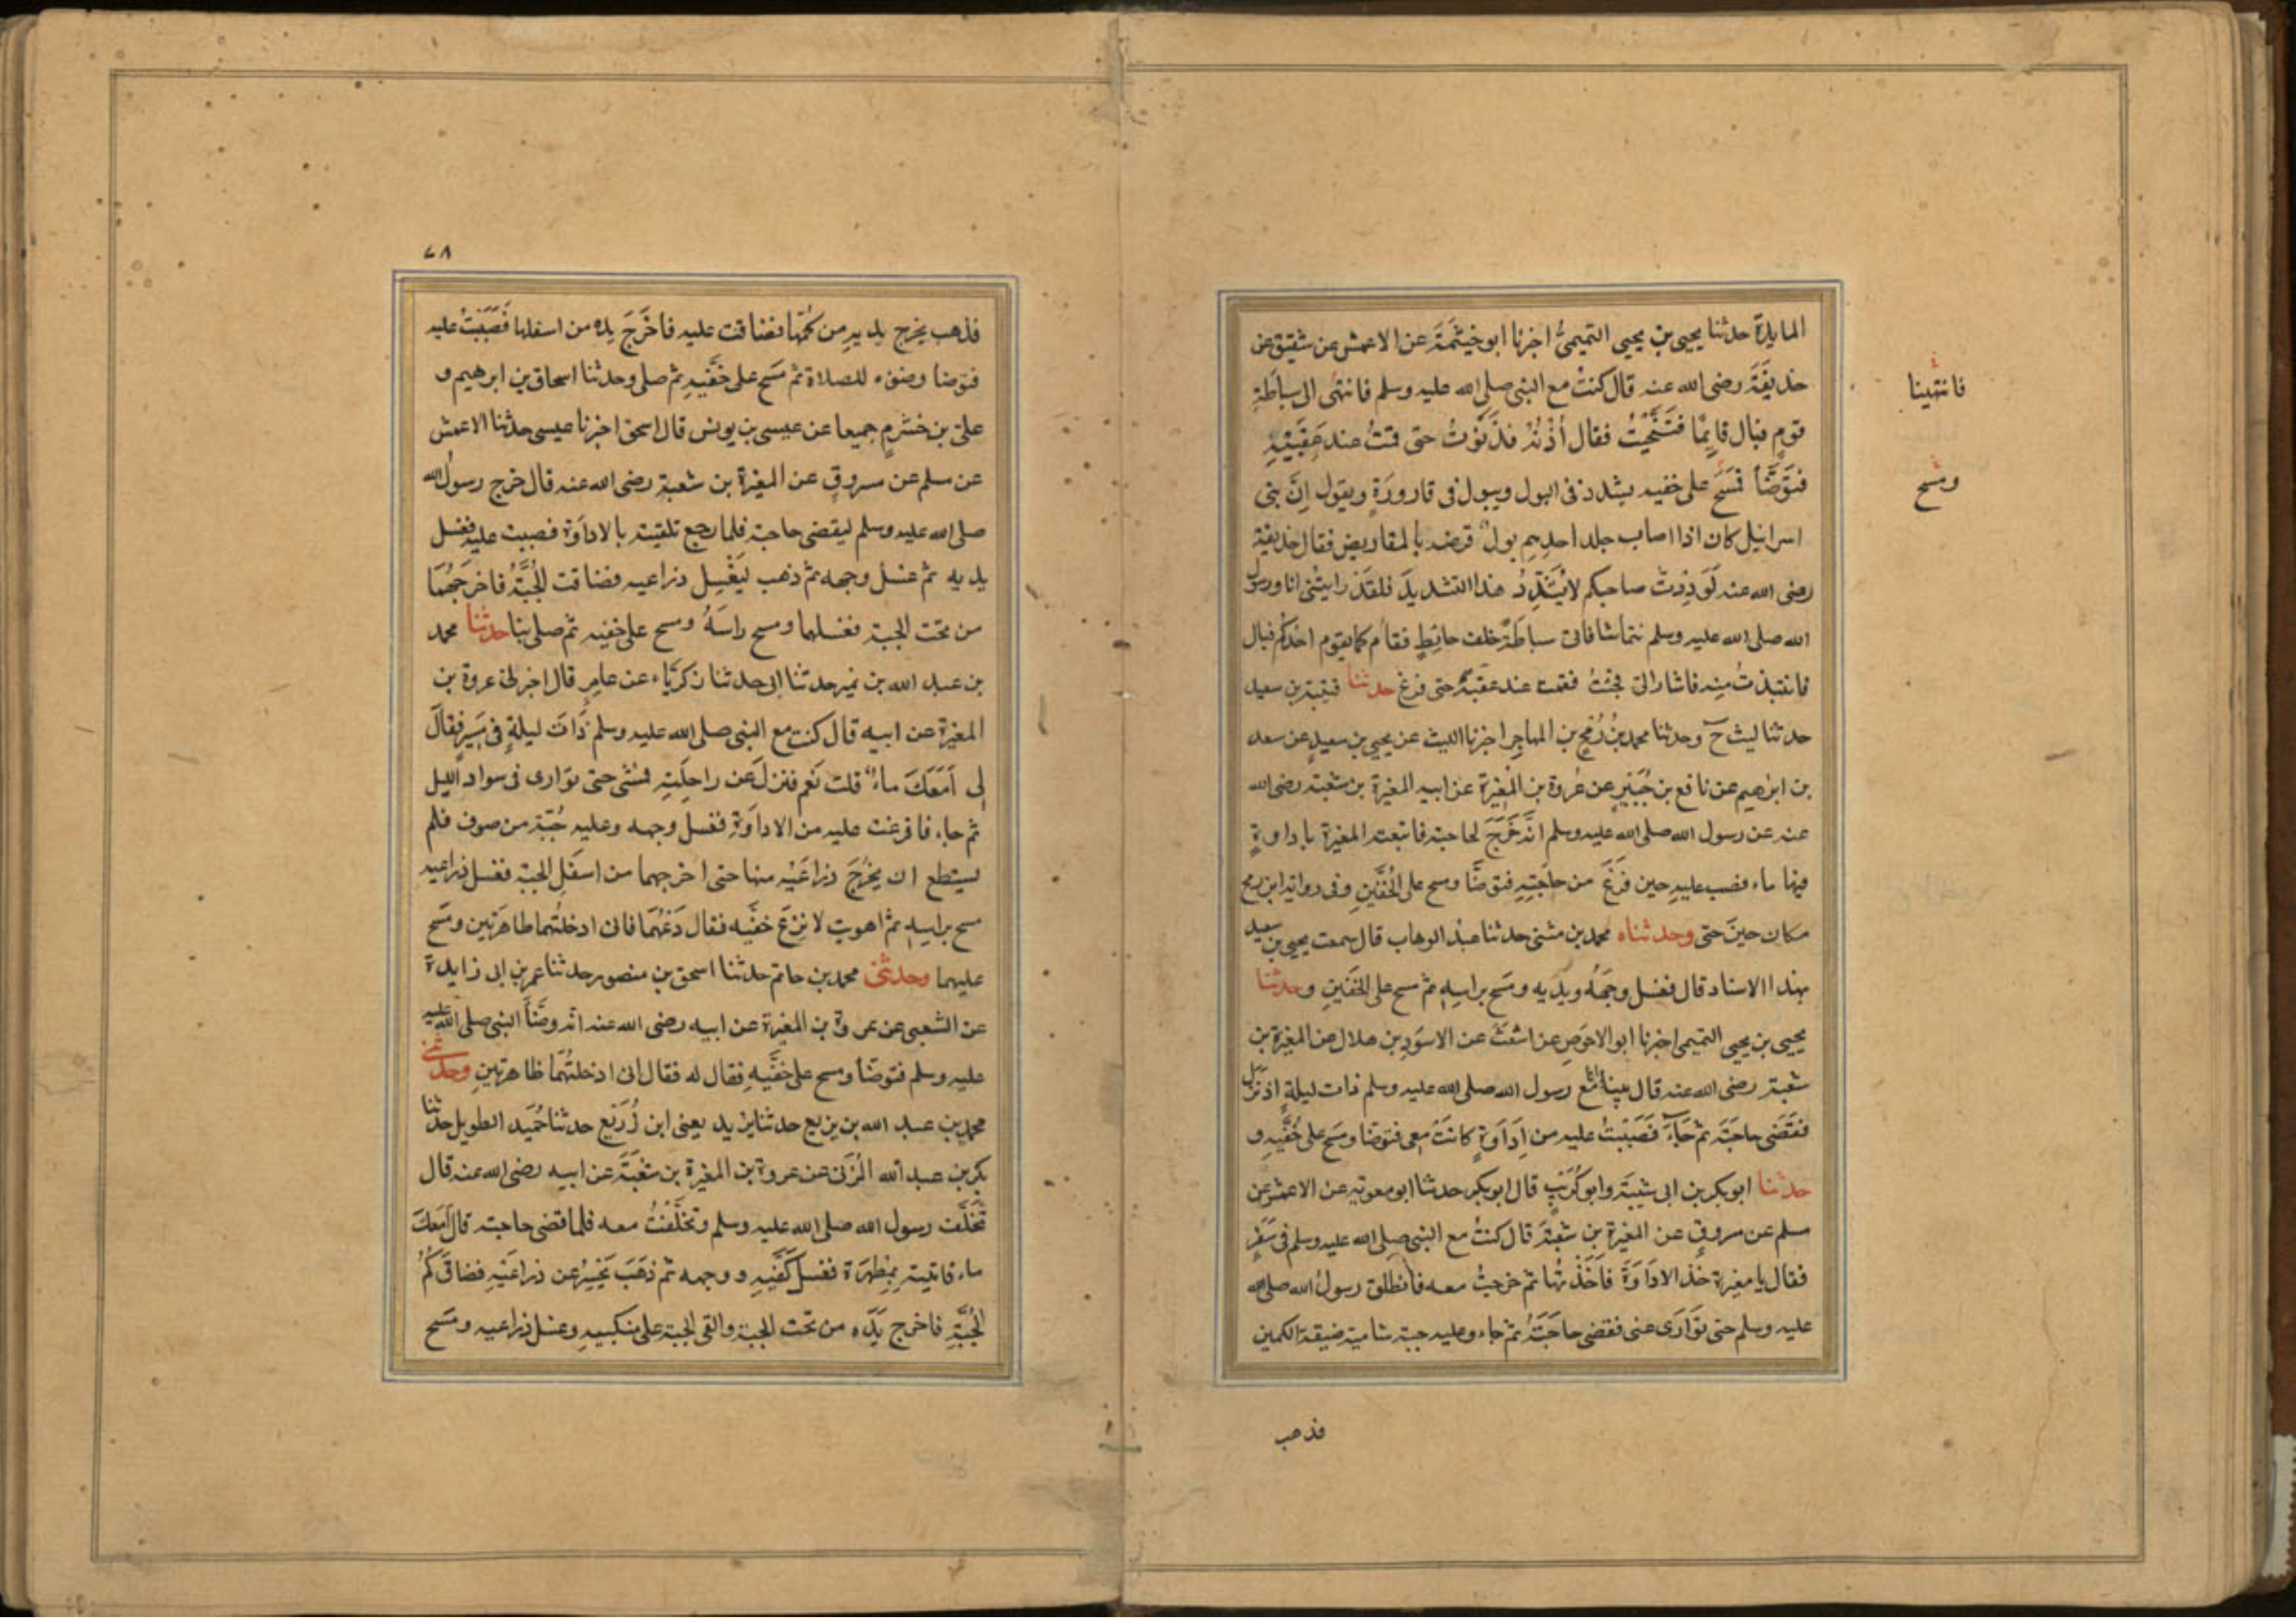 المايدة حدثنا يحيى بن يحيى التميمىُّ اخبرنا ابو خيثَمَةَ عن الاعمش عن شقيق عن
حذيفَةَ رضى الله عنه قال كنتُ مع النبى صلى الله عليه وسلم فانتهى الى سباطَةِ
قومٍ فبال قايِمًا فتَنَحَّيْتُ فقال أُدْنُهْ فدَنَوْتُ حتى قمتُ عند عَقِبَيْهِ
فتَوَضَّأَ فمَسَحَ على خفيه يشدد فى البول ويبول فى قارورَةٍ ويقول اِنَّ بنى
اسرائيل كان اذا اصاب جلد احدِهِم بولٌ قرضه بالمقاريض فقال حذيفة
رضى الله عنه لَوَدِدْتُ صاحبكم لا يُشَدِّدُ هذا التشديدَ فلقَدْ رايتُنى انا ورسول
الله صلى الله عليه وسلم نتماشا فاتى سباطَةً خلف حائِطٍ فقام كما يقوم احدُكُم فبال
فانتبذتُ مِنه فاشار الىَّ فجئتُ فقمت عند عقبهِ حتى فرغ حدثنا قتيبة بن سعيد
حدثنا ليث ح وحدثنا محمد بنُ رُمْحِ بن المهاجِرِ اخبرنا الليث عن يحيى بن سعيدٍ عن سعد
بن ابرهيم عن نافع بن جُبَيْرٍ عن عُروة بن المُغِيرة عن ابيه المغيرة بن شعبة رضى الله
عنه عن رسول الله صلى الله عليه وسلم انَّه خَرَجَ لحاجته فاتبعته المغيرة باداوةٍ
فيها ماء فصب عليهِ حين فَرَغَ من حاجَتِهِ فتوضَّا ومسح على الخُفَّيْنِ وفى رواية ابن رمح
مكان حينَ حتى وحدثناه محمد بن مثنى حدثنا عبدُ الوهاب قال سمعت يحيى بن سعيد
بهذا الاسناد قال فغسل وجهَهُ ويدَيه ومَسَح براسِهِ ثم مسح على الخفَّينِ وحدثنا
يحيى بن يحيى التميمى اخبرنا ابو الاحوَصِ عن اشعَثَ عن الاسوَدِ بن هلال عن المغيرة بن
شعبة رضى الله عنه قال بينا انا مَعَ رسول الله صلى الله عليه وسلم ذات ليلةٍ اذ نَزَل
فقَضَى حاجتَه ثم جَاءَ فصَبَبْتُ عليه من اِدَاوَةٍ كانتْ معِى فتوضا ومسَح على خُفَّيهِ و
حدثنا ابو بكر بن ابى شيبَةَ وابو كُرَيْبٍ قال ابو بكر حدثنا ابو معوية عن الاعمش عن
مسلم عن مسروقٍ عن المغيرة بن شعبَةَ قال كنتُ مع النبى صلى الله عليه وسلم فى سَفَرٍ
فقال يا مغيرة خذ الادَاوَةَ فاَخَذْتُها ثم خرجتُ معه فانطلق رسولُ الله صلى الله
عليه وسلم حتى تَوَارَى عنى فقضى حاجَتَهُ ثم جاء وعليه جبة شامية ضيقة الكمين
فانتهينا
ومَسَح
فذهب
٧٨
فذهب يخرج يديهِ من كُمِّها فضاقت عليه فاخْرَجَ يده من اسفلها فَصَبَبْتُ عليه
فتوضا وضوءه للصلاة ثم مَسَحَ على خفَّيهِ ثم صلى وحدثنا اسحاق بن ابرهيم و
علىّ بن خشرمٍ جميعا عن عيسى بن يونس قال اسحق اخبرنا عيسى حدثنا الاعمش
عن مسلم عن مسروقٍ عن المغيرة بن شعبة رضى الله عنه قال خرج رسول الله
صلى الله عليه وسلم ليقضى حاجته فلما رجع تلقيته بالادَاوَة فصببت عليه فغسل
يديه ثم غسلَ وجهه ثم ذهب ليَغْسِل ذراعيه فضاقت الجُبَّةُ فاخرَجَهُمَا
من تحت الجبة فغسلهما ومسح راسَهُ ومسح على خفيه ثم صلى بنا حدثنا محمد
بن عبد الله بن نميرٍ حدثنا ابى حدثنا زكرياء عن عامِرٍ قال اخبرنى عروة بن
المغيرة عن ابيه قال كنت مع النبى صلى الله عليه وسلم ذاتَ ليلةٍ فى مَسِيرٍ فقالَ
لِى اَمَعَكَ ماءٌ قلت نَعَم فنزلَ عن راحلَتِهِ فمشى حتى توارى فى سواد الليل
ثم جاء فافرغت عليه من الاداوَةِ فغسل وجهه وعليه جُبَّة من صوف فلم
يستطع ان يُخرِجَ ذراعَيْه منها حتى اخرجهما من اسفَلِ الجبة فغسل ذراعيه
مسح براسِهِ ثم اهويت لانزِعَ خفَّيه فقال دَعْهُمَا فانى ادخلتُهما طاهرَتين ومَسَح
عليهما وحدثنى محمد بن حاتم حدثنا اسحق بن منصور حدثنا عمر بن ابى زايدة
عن الشعبى عن عروة بن المغيرة عن ابيه رضى الله عنه انه وضَّأَ النبى صلى الله عليه
عليه وسلم فتوضَأ ومسح على خفَّيهِ فقال له فقال انى ادخلتُهما طاهرتينِ وحدثنى
محمد بن عبد الله بن بزيع حدثنا يزيد يعنى ابن زُرَيْع حدثنا حُمَيد الطويل حدثنا
بكر بن عبد الله المُزَنى عن عروة بن المغيرة بن شعْبَةَ عن ابيه رضى الله عنه قال
تَخَلَّفَ رسول الله صلى الله عليه وسلم وتخلَّفْتُ معه فلما قضى حاجته قال اَمَعَكَ
ماء فاتيته بِمِطهَرَة فغسل كَفَّيهِ و وجهه ثم ذَهَبَ يَحْسِرُ عن ذراعَيْهِ فضاقَ كُمُّ
الجُبَّةِ فاخرج يَدَه من تحت الجبة والقى الجبة على منكبيهِ وغسل ذراعيه ومَسَح